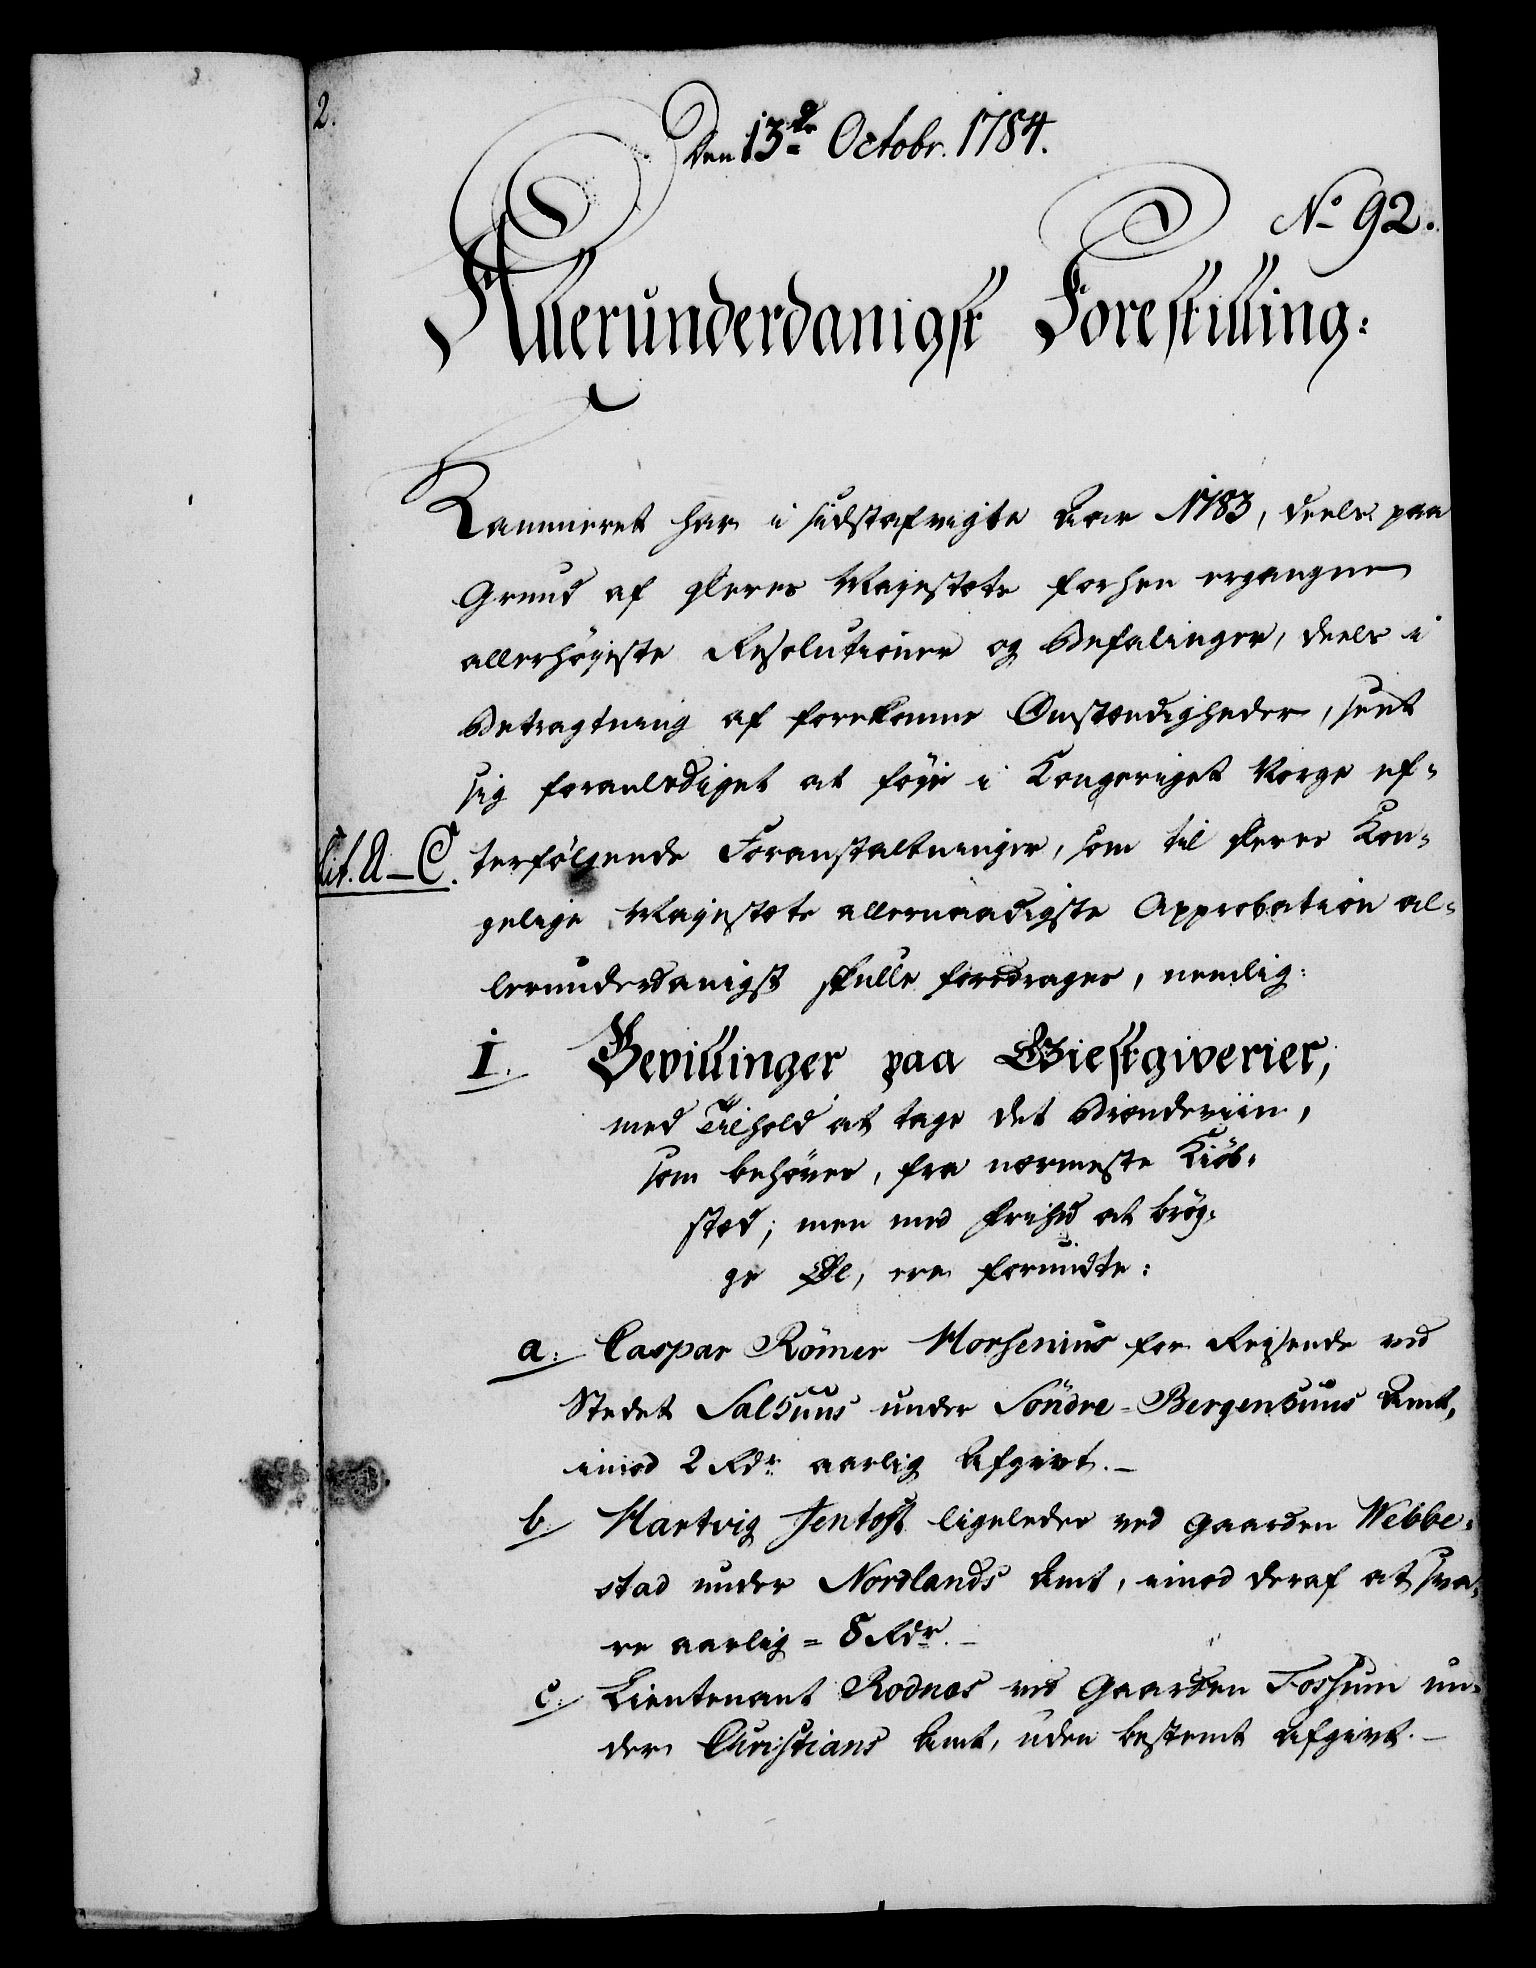 2.
Den 13de Octobr. 1784.
No 92.
Allerunderdanigst Forestilling:
Kammeret har i sidstafvigte Aar 1783, deels paa
Grund af Deres Majestæts forhen ergangne
allerhøyeste Resolutioner og Befalinger, deels i
Betragtning af forekomne Omstændigheder, seet
sig foranlediget at føye i Kongeriget Norge ef-
Lit. A-C.
terfølgende Foranstaltninger, som til Deres Kon-
gelige Majestæts allernaadigste Approbation al-
lerunderdanigst skulle foredrages, nemlig:
I. Bevillinger paa Giestgiverier,
med Tilhold at tage det Brændeviin,
som behøves, fra nærmeste Kiøb-
stæd; men med Frihed at brøg-
ge Øl, ere forundte:
a. Caspar Römer Morsenius for Reisende ved
Stedet Salhuus under Söndre-Bergenhuus Amt,
imod 2 Rdr aarlig Afgivt.-
b. Hartvig Jentoft ligeledes ved Gaarden Webbe-
stad under Nordlands Amt, imod deraf at sva-
re aarlig = 8 Rdr.-
c. Lieutenant Rodnæs ved Gaarden Fossum un-
der Christians Amt, uden bestemt Afgivt.-